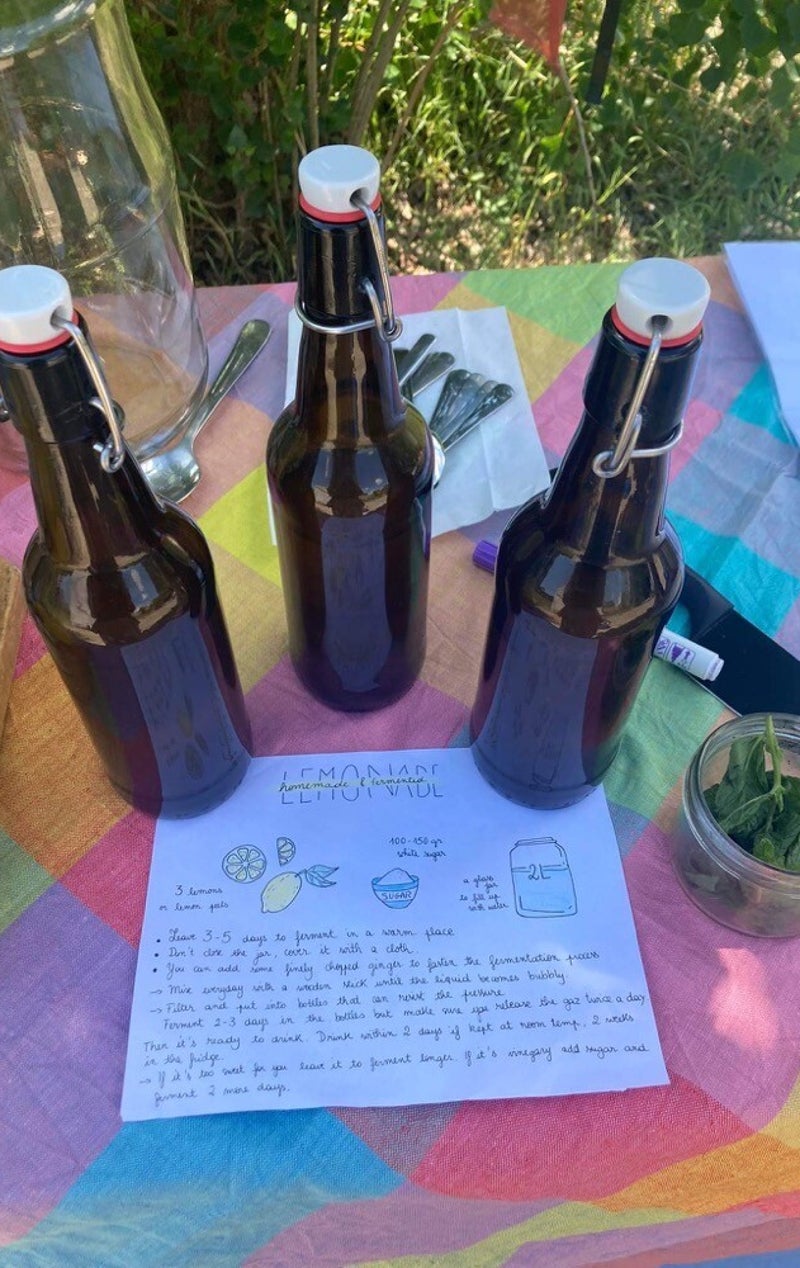 LEMONADE
homemade & fermented
3 lemons
or lemon peels
100-150 gr
white sugar
SUGAR
a glass
jar
to fill up
with water
2L
• Leave 3-5 days to ferment in a warm place
• Don't close the jar, cover it with a cloth.
• You can add some finely chopped ginger to fasten the fermentation process
→ Mix everyday with a wooden stick until the liquid becomes bubbly.
→ Filter and put into bottles that can resist the pressure.
Ferment 2-3 days in the bottles but make sure you release the gaz twice a day.
Then it's ready to drink. Drink within 2 days if kept at room temp, 2 weeks
in the fridge.
→ If it's too sweet for you leave it to ferment longer. If it's vinegary add sugar and
ferment 2 more days.